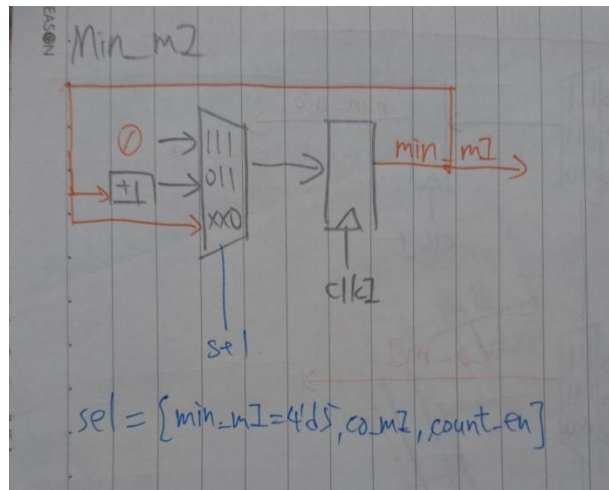 EASON
Min_m1
0
111
+1
011
xx0
min_m1
clk1
sel
sel = [min_m1=4'd5, co_m1, count_en]